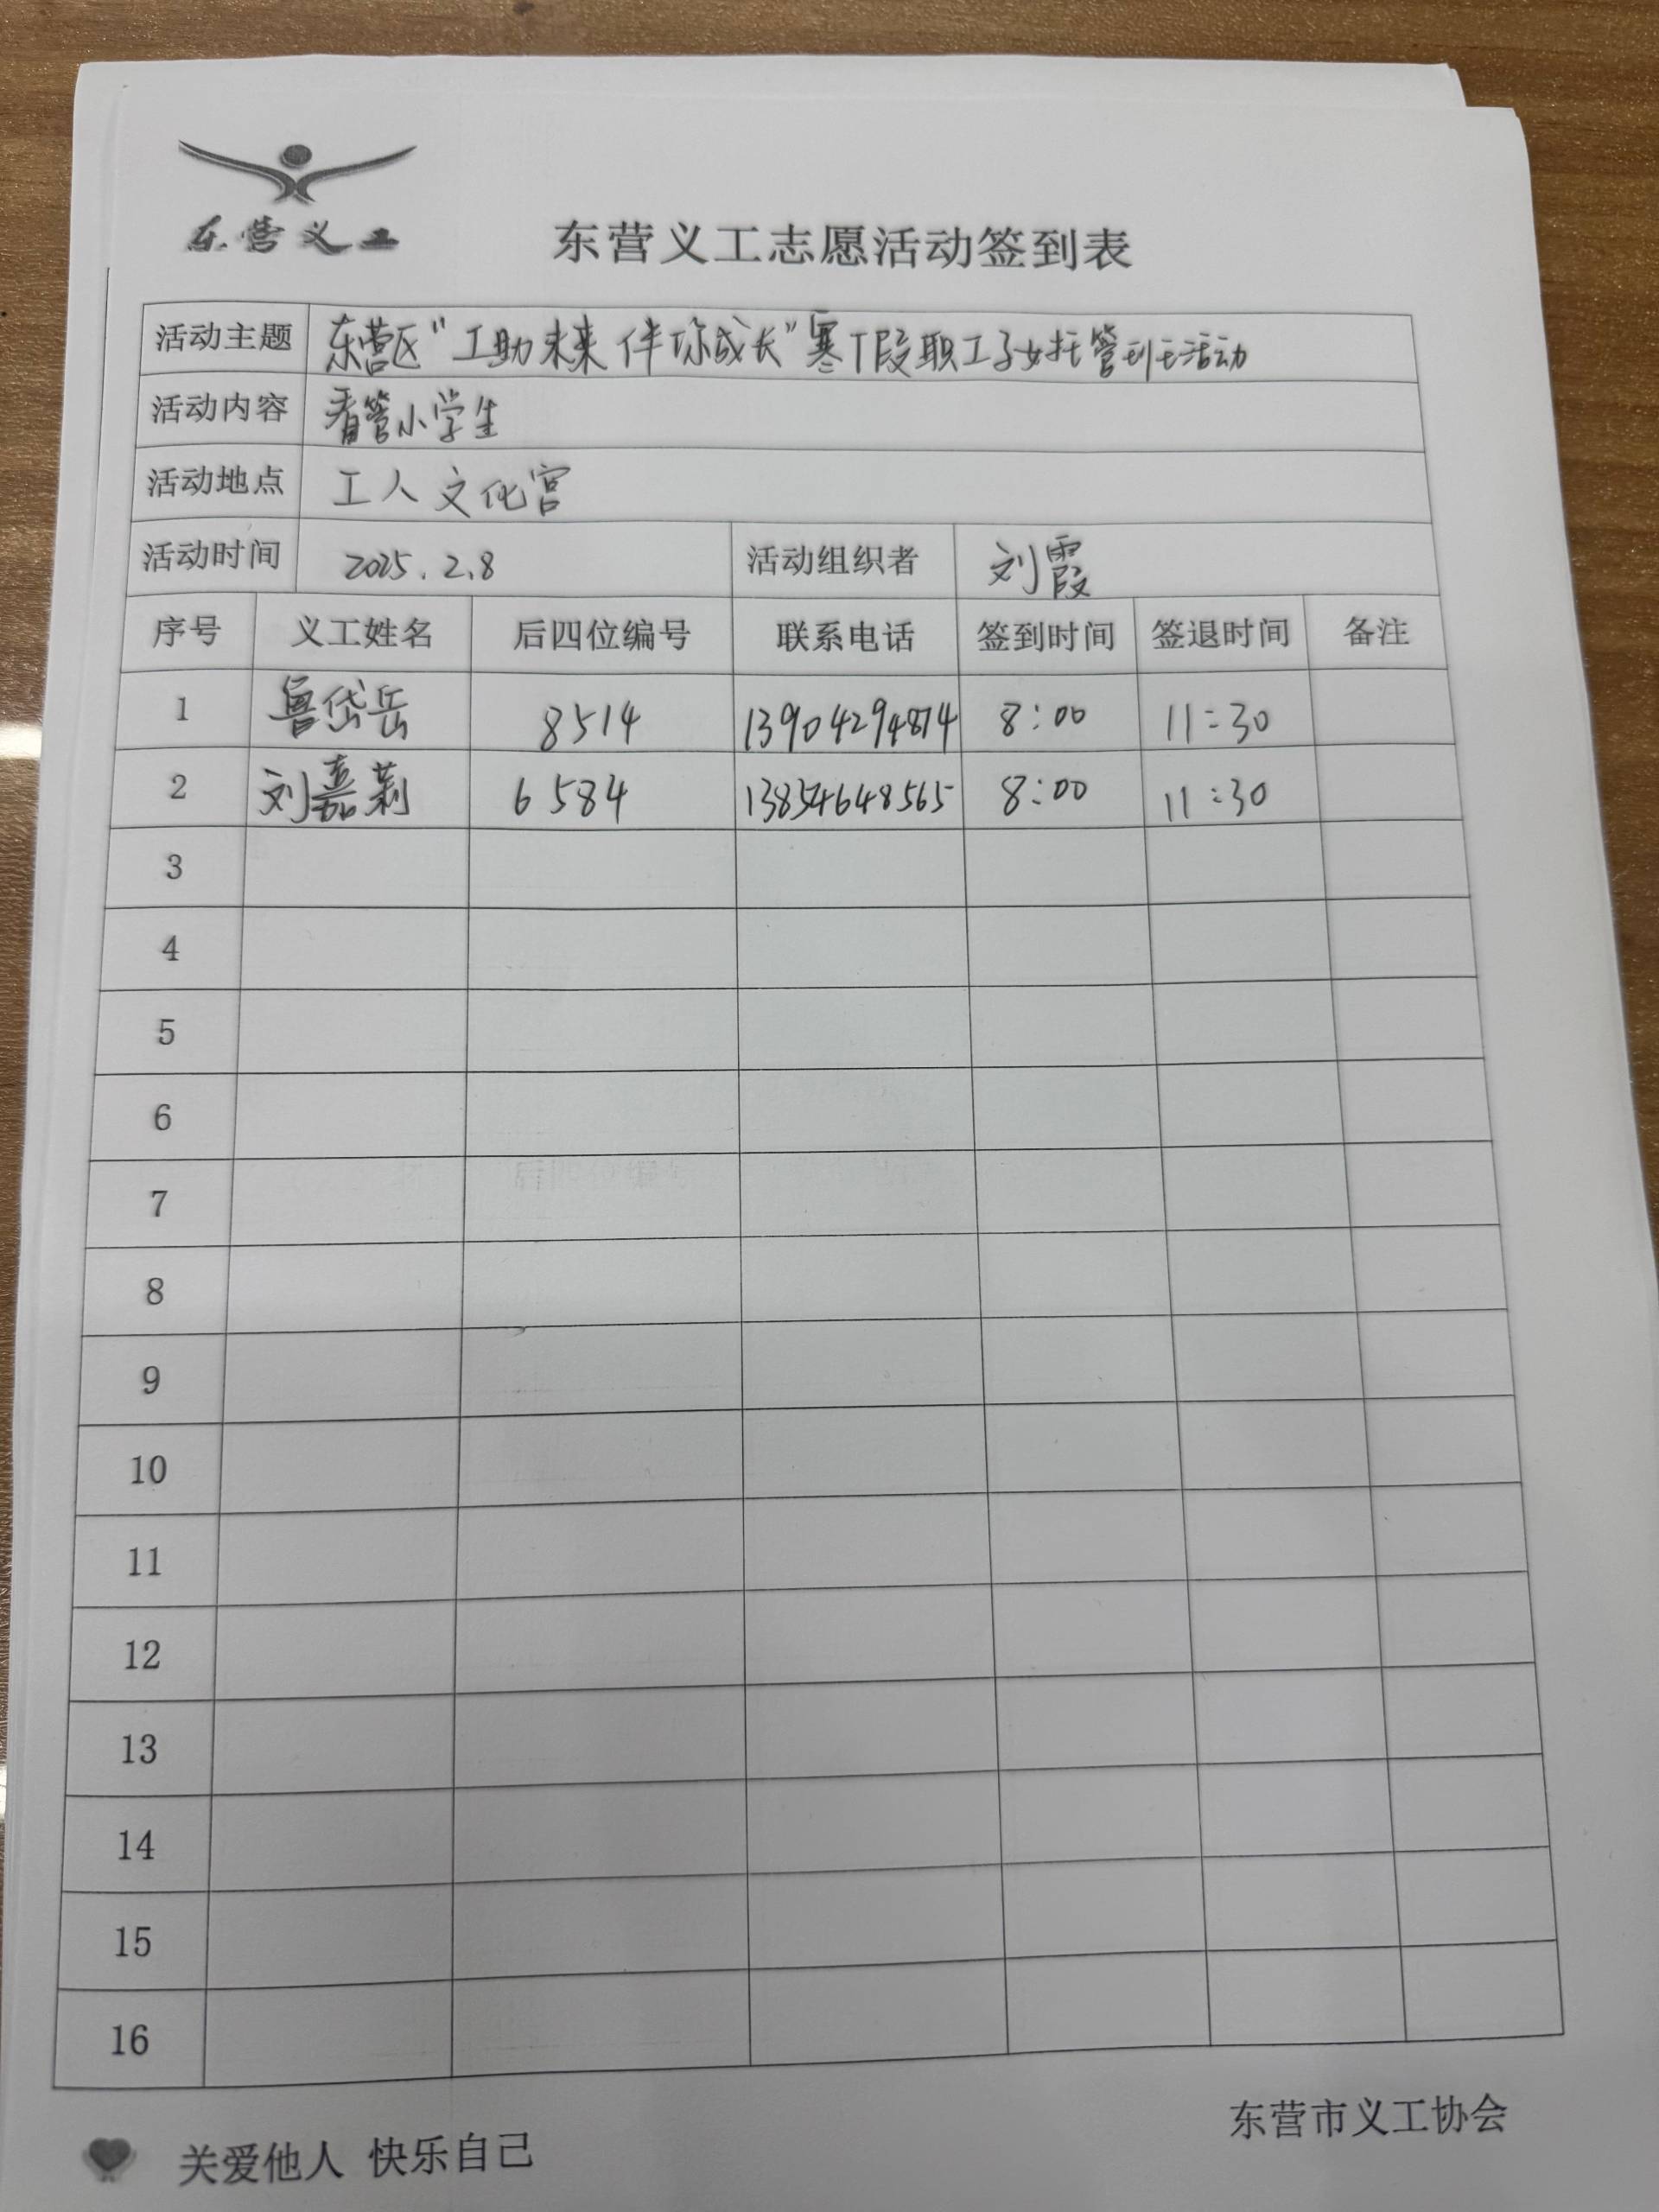 东营义工
东营义工志愿活动签到表
活动主题 东营区“工助未来 伴你成长”寒假职工子女托管班活动
活动内容 看管小学生
活动地点 工人文化宫
活动时间 2025.2.8 活动组织者 刘霞
序号 义工姓名 后四位编号 联系电话 签到时间 签退时间 备注
1 鲁岱岳 8514 13904294814 8:00 11:30
2 刘嘉莉 6584 13854648565 8:00 11:30
3
4
5
6
7
8
9
10
11
12
13
14
15
16
东营市义工协会
关爱他人 快乐自己